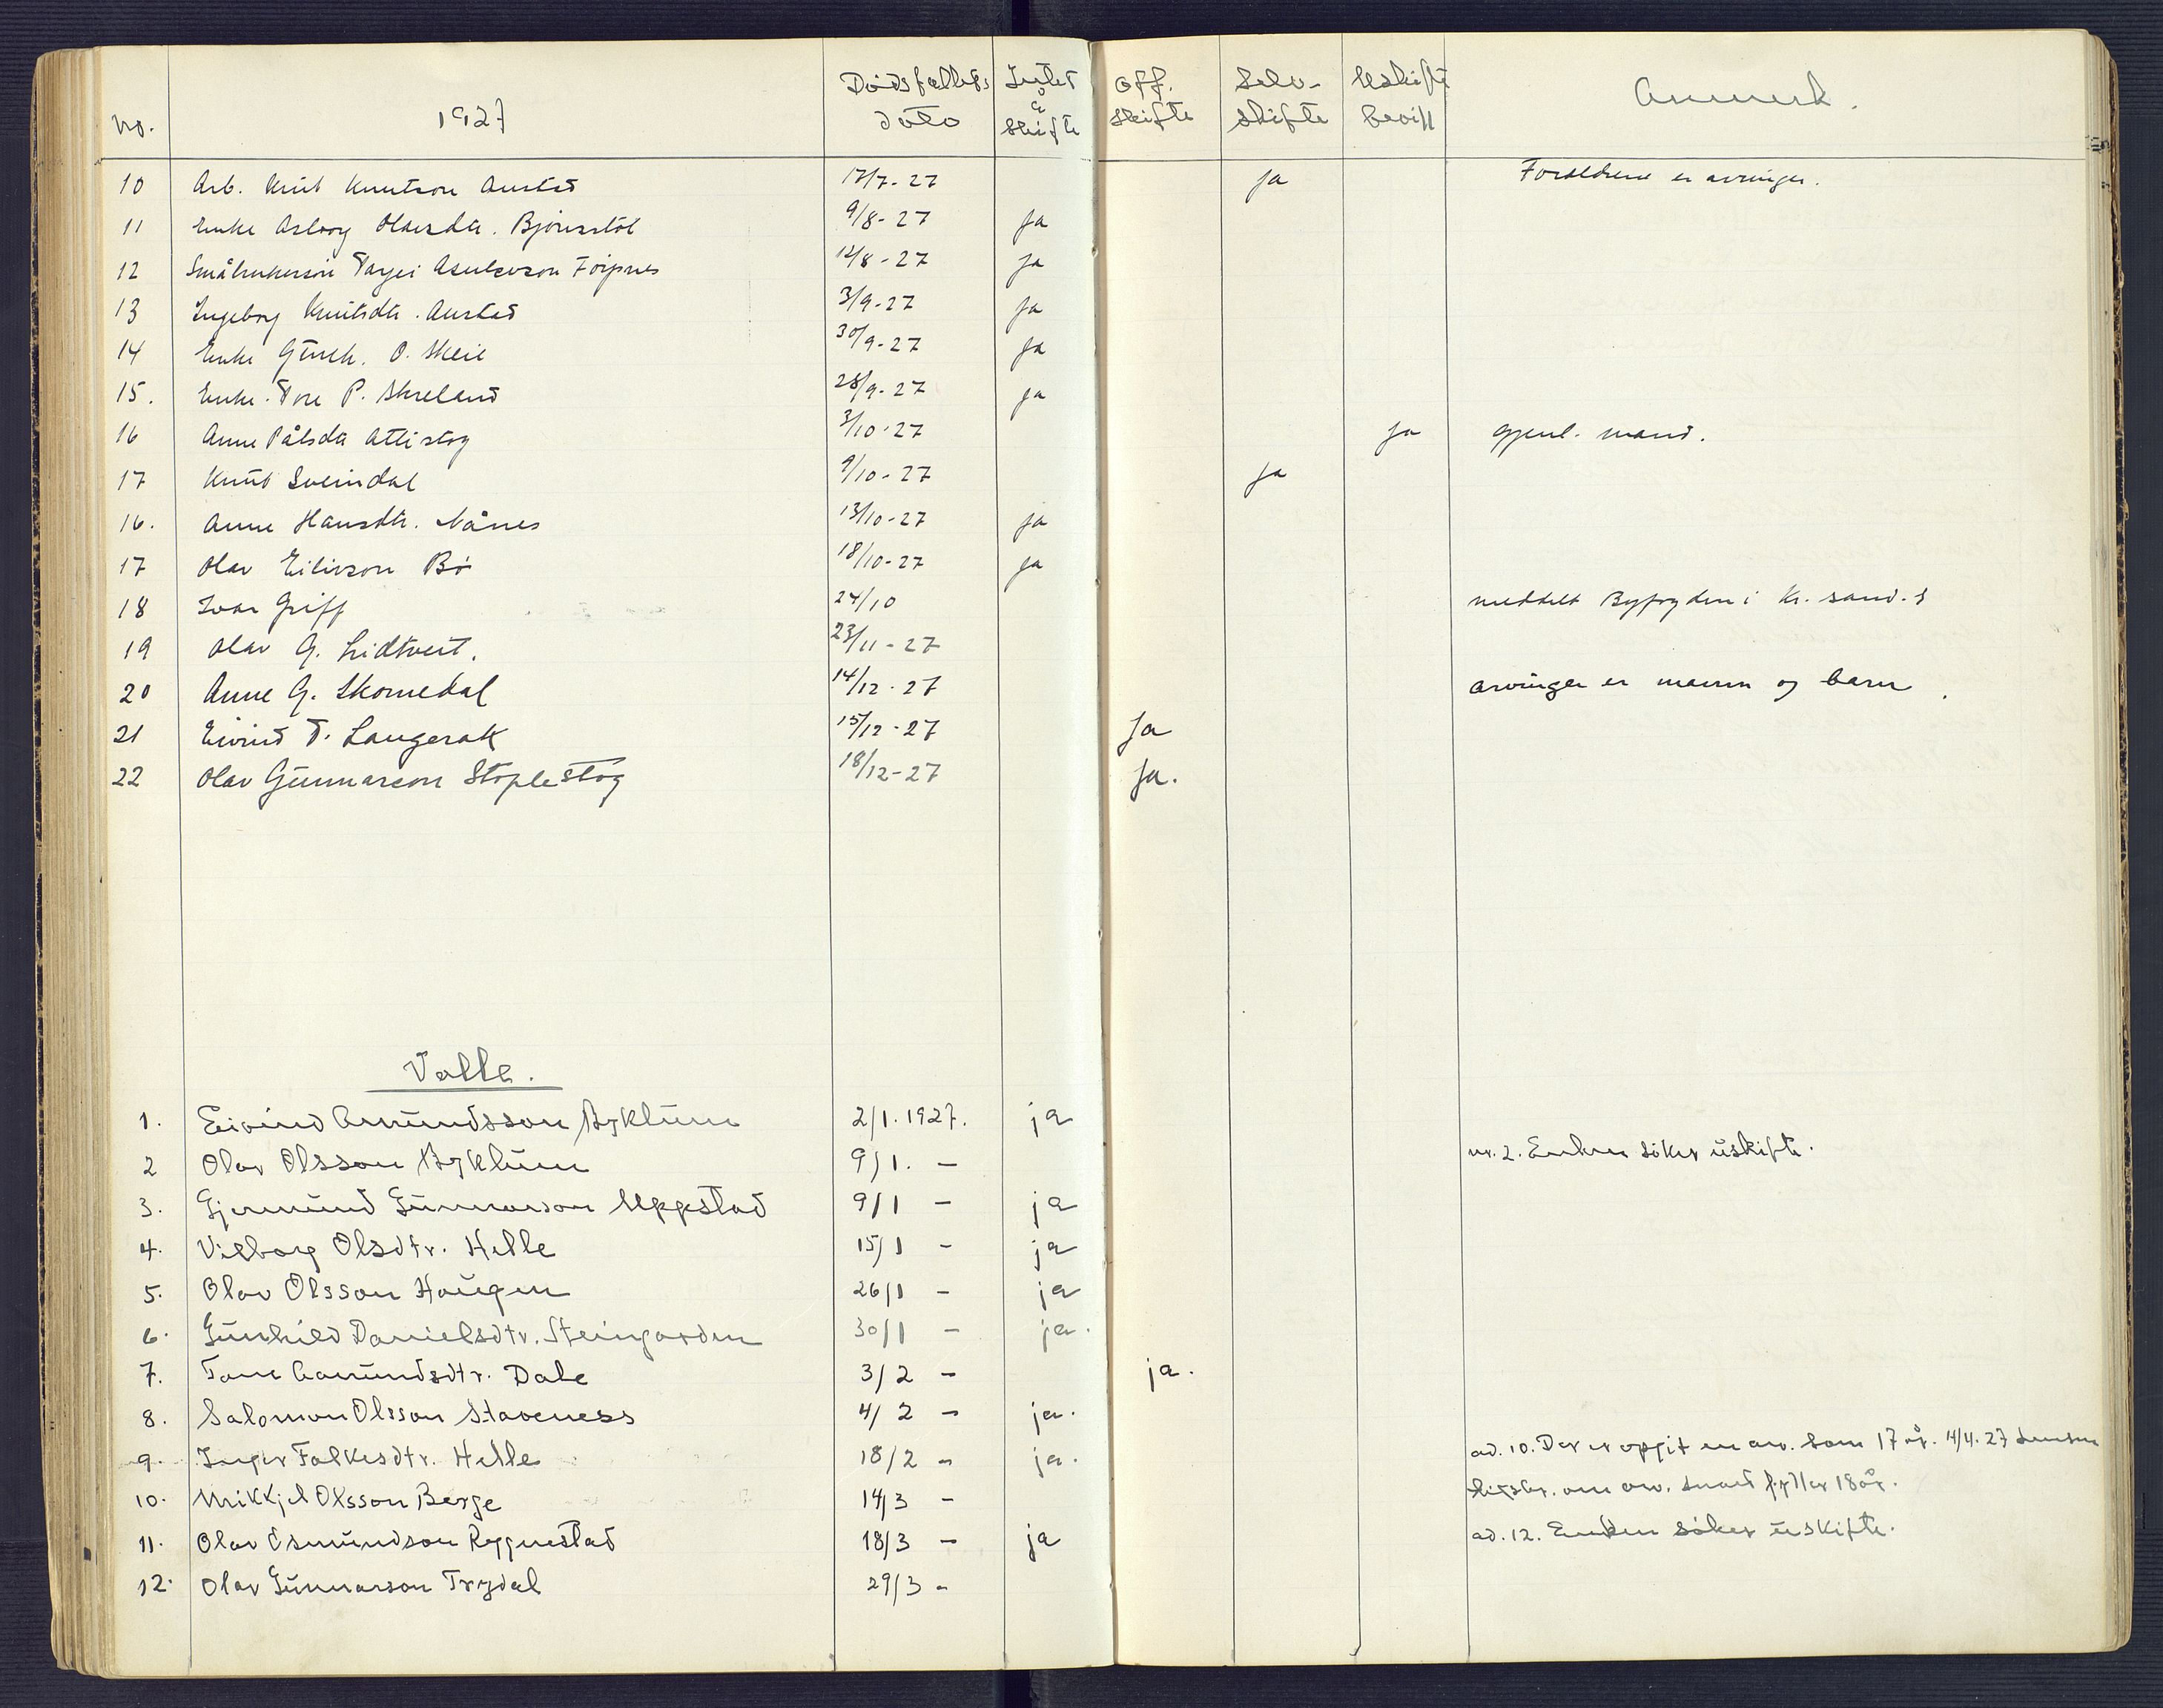 No. 1927 Dødsfallets dato Intet å skifte Off. skifte Selv-skifte Uskifte bevill Anmerk.
10 Arb. Knut Knutson Austad 17/7-27 ja Foreldrene er arvinger.
11 Enke Asborg Olavsdtr. Bjørnstøl 9/8-27 ja
12 Småbrukerson Targei Asulvson 12/8-27 ja
13 Ingeborg Knutsdtr. Austad 3/9-27 ja
14 Enke Gunh. O. Skeie 30/9-27 ja
15. Enke Tore P. Skreland 28/9-27 ja
16 Anne Pålsdtr Attistog 3/10-27 ja gjenl. mand.
17 Knut Sveindal 9/10-27 ja
16. Anne Hansdtr. Nånes 13/10-27 ja
17 Olav Eilivson Bø 18/10-27 ja
18 Ivar Griff 24/10 meddelt Byfogden i Kr.sand. S
19 Olav G. Lidtveit. 23/11-27
20 Anne G. Skomedal 14/12-27 arvinger er mann og barn.
21 Eivind T. Langerak 15/12-27 Ja
22 Olav Gunnarson Stoplestog 18/12-27 Ja.
Valle.
1. Eivind Amundsson Byklum 2/1.1927. ja
2 Olav Olsson Byklum 9/1. - nr. 2. Enken søker uskifte.
3. Gjermund Gunnarson Uppstad 9/1 - ja
4. Vilborg Olsdtr. Helle 15/1 - ja
5. Olav Olsson Haugen 26/1 - ja
6. Gunhild Danielsdtr. Steingarden 30/1 - ja.
7. Tone Aamundsdtr. Dale 3/2 - ja.
8. Salomon Olsson Staveness 4/2 - ja.
9. Inger Falkesdtr. Helle 18/2 - ja.
ad. 10. Der er oppgit en arv. som 17 år. 4/4.27
10. Mikkjel Olsson Berge 14/3 - om arv. snart fyller 18 år.
11. Olav Osmundson Rygnestad 18/3 - ja ad. 12. Enken søker uskifte.
12. Olav Gunnarson Trydal 29/3 -